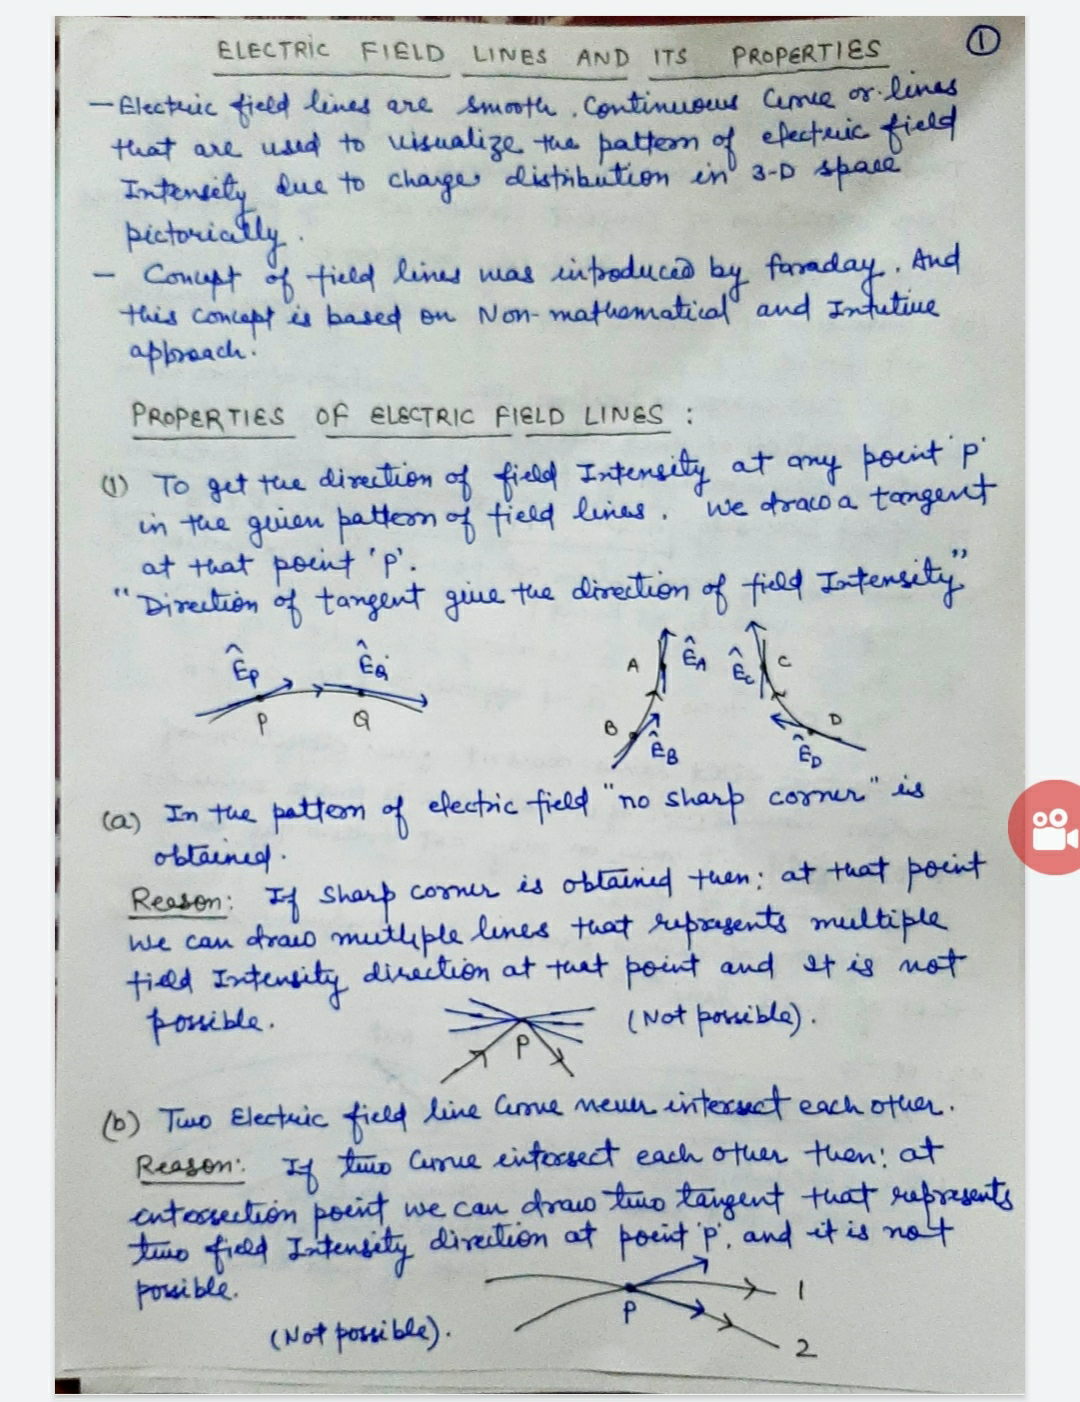 ELECTRIC FIELD LINES AND ITS PROPERTIES
1
- Electric field lines are smooth, Continuous Curve or lines
that are used to visualize the pattern of electric field
Intensity due to charge distribution in 3-D space
pictorically.
- Concept of field lines was introduced by faraday. And
this concept is based on Non-mathematical and Intutive
approach.
PROPERTIES OF ELECTRIC FIELD LINES :
(1) To get the direction of field Intensity at any point 'p'
in the given pattern of field lines. We draw a tangent
at that point 'p'.
"Direction of tangent give the direction of field Intensity"
ÊP ÊQ A ÊA ÊC C
P Q B ÊB ÊD D
(a) In the pattern of electric field "no sharp corner" is
obtained.
Reason: If Sharp corner is obtained then; at that point
we can draw multiple lines that represents multiple
field Intensity direction at that point and It is not
possible. P (Not possible).
(b) Two Electric field line Curve never intersect each other.
Reason: If two Curve intersect each other then; at
intersection point we can draw two tangent that represents
two field Intensity direction at point 'p'. and it is not
possible.
P 1
(Not possible). 2